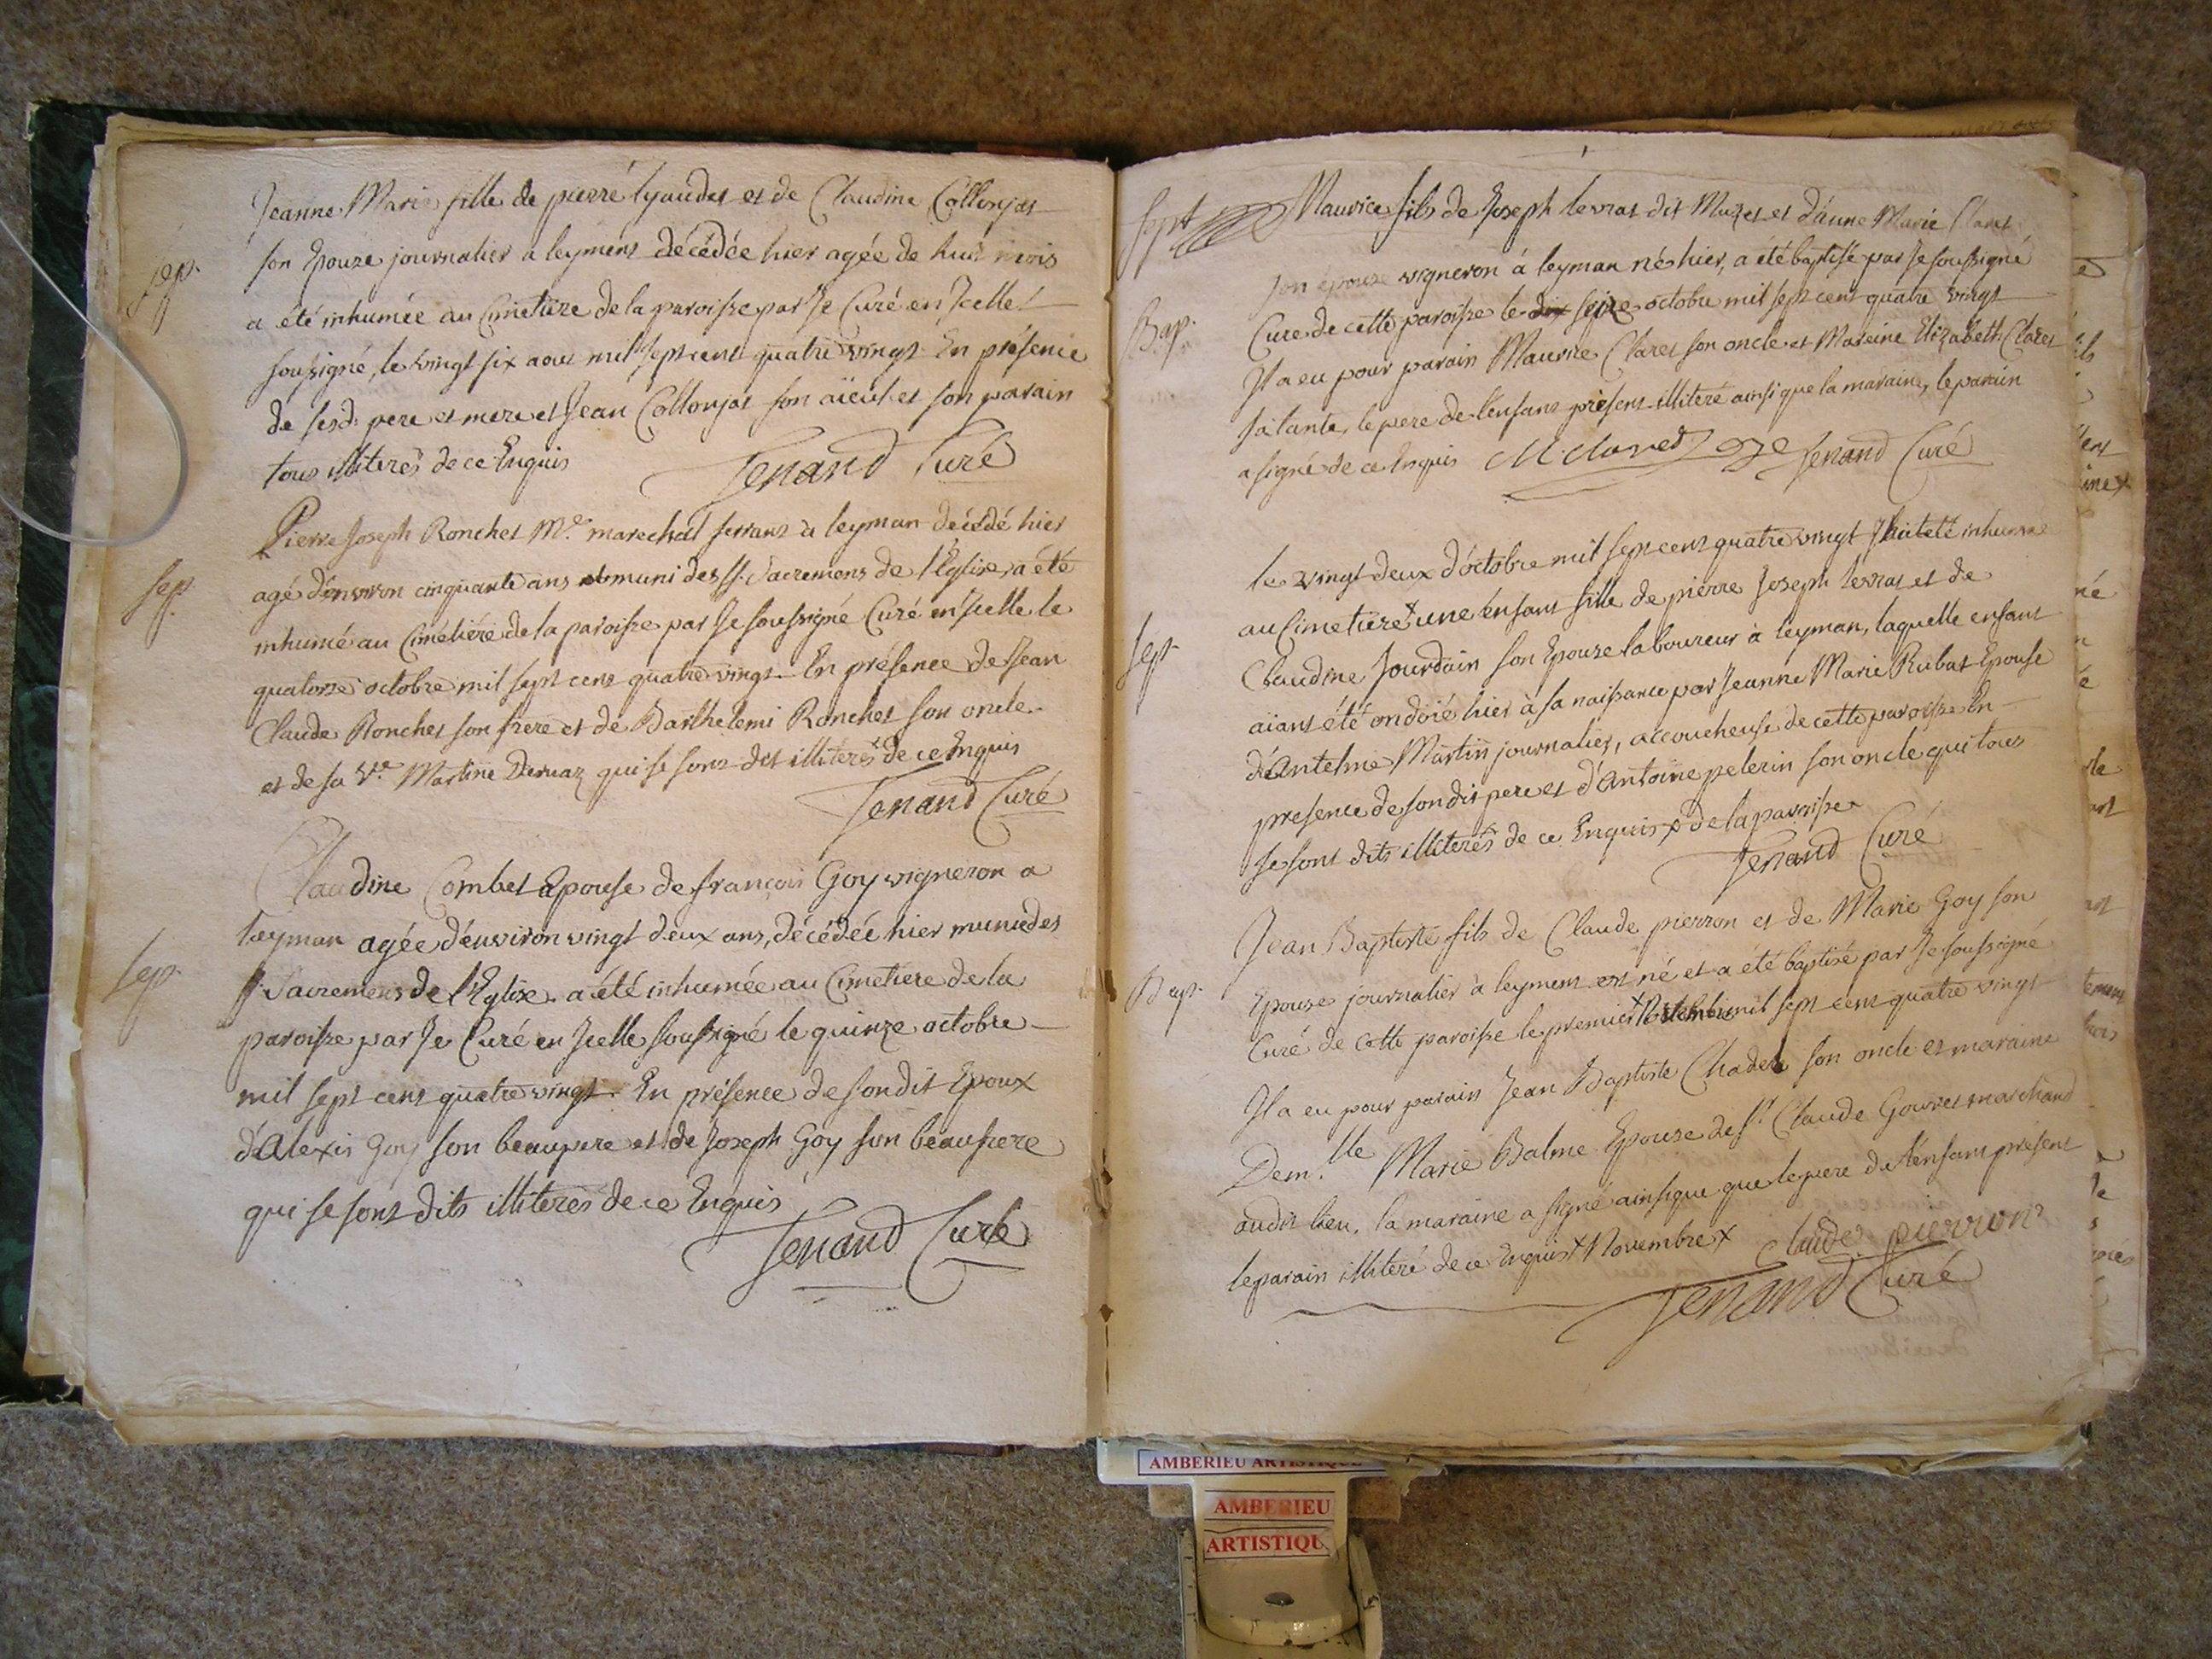 Jeanne Marie fille de pierre lyaudet et de Claudine Collonjat
sep.
son Epouze journalier a leyment décédée hier agée de huit mois
a été inhumée au Cimetiere de la paroisse par Je Curé en Jcelle
soussigné, le vingt six aout mil sept cent quatre vingt En présence
de sesd. pere et mere et Jean Collonjat son aïeul et son parain
tous illiterés de ce Enquis
Tenand Curé
Pierre Joseph Ronchet Me. marechal ferrant à leyman décédé hier
sep.
agé d'environ cinquante ans muni des SS. Sacremens de l'Eglise, a été
inhumé au Cimétiére de la paroisse par Je soussigné Curé en Jcelle le
quatorze octobre mil sept cent quatre vingt. En présence de Jean
Claude Ronchet son frere et de Barthelemi Ronchet son oncle
et de sa Ve. Martine Dervaz qui se sont dit illiterés de ce Enquis
Tenand Curé
Claudine Combet Epouse de françois Goy vigneron a
leyman agée d'environ vingt deux ans, décédée hier munie des
sep.
SS. Sacremens de l'Eglise a été inhumée au Cimetiere de la
paroisse par Je Curé en Jcelle soussigné le quinze octobre
mil sept cent quatre vingt. En présence de sondit Epoux
d'Alexis Goy son beaupere et de Joseph Goy son beaufrere
qui se sont dits illiterés de ce Enquis
Tenand Curé
Sept
Maurice fils de Joseph levrat dit Muzet et d'anne Marie Claret
son épouze vigneron à leyman né hier, a été baptisé par Je soussigné
Bap.
Curé de cette paroisse le dix seize octobre mil sept cent quatre vingt
Jl a eu pour parain Maurice Claret son oncle et Maraine Elizabeth Claret
sa tante, le pere de l'enfant présent illiteré ainsi que la maraine, le parain
a signé de ce Enquis M. Claret Tenand Curé
le vingt deux d'octobre mil sept cent quatre vingt J'ai été inhumé
au Cimetiere x une enfant fille de pierre Joseph levrat et de
Sep.
Claudine Jourdain son Epouze laboureur à leyman, laquelle enfant
aïant été ondoié hier à sa naissance par Jeanne Marie Rubat Epouse
d'Antelme Martin journalier, accoucheuse de cette paroisse En
presence de sondit pere et d'Antoine pelerin son oncle qui tous
se sont dits illiterés de ce Enquis x de la paroisse
Tenand Curé
Jean Baptiste fils de Claude pierron et de Marie Goy son
Bap.
Epouse journalier à leyment est né et a été baptisé par Je soussigné
Curé de cette paroisse le premier x mil sept cent quatre vingt
Jl a eu pour parain Jean Baptiste Chadel son oncle et maraine
Dem.lle Marie Balme Epouze de Sr. Claude Gouvet marchand
audit lieu, la maraine a signé ainsique que le pere de l'enfant présent
le parain illiteré de ce Enquis x Novembre x Claude pierron
Tenand Curé
AMBERIEU ARTISTIQUE
AMBERIEU
ARTISTIQU